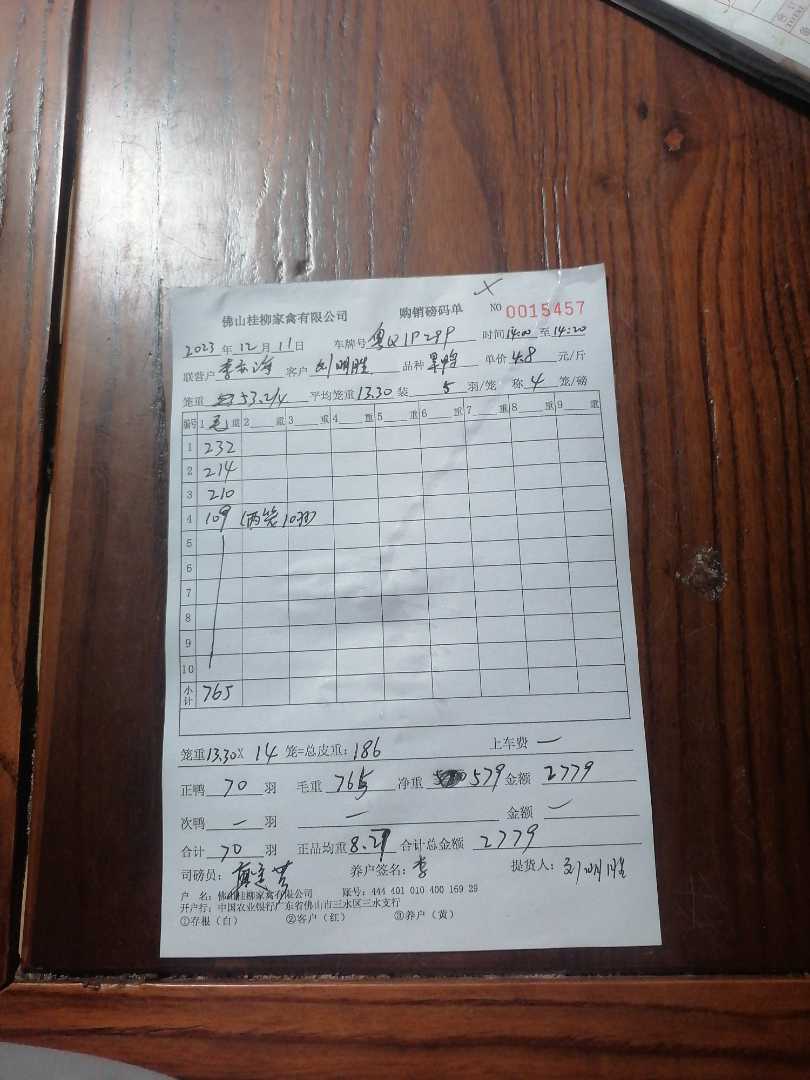 佛山桂柳家禽有限公司 购销磅码单 NO 0015457
2023 年 12 月 11 日 车牌号 粤Q1P29P 时间 14:00 至 14:20
联营户 李 客户 刘明胜 品种 单价 4.8 元/斤
笼重 53.2/4 平均笼重 13.30 装 5 羽/笼 称 4 笼/磅
编号 1 毛 重 2 重 3 重 4 重 5 重 6 重 7 重 8 重 9 重
1 232
2 214
3 210
4 109 (两笼10羽)
5
6
7
8
9
10
小计 765
笼重 13.30 X 14 笼=总皮重: 186 上车费 一
正鸭 70 羽 毛重 765 净重 579 金额 2779
次鸭 一 羽 一 金额 一
合计 70 羽 正品均重 8.27 合计总金额 2779
司磅员: 养户签名: 李 提货人: 刘明胜
户 名: 佛山桂柳家禽有限公司 账号: 444 401 010 400 169 29
开户行: 中国农业银行广东省佛山市三水区三水支行
①存根（白） ②客户（红） ③养户（黄）